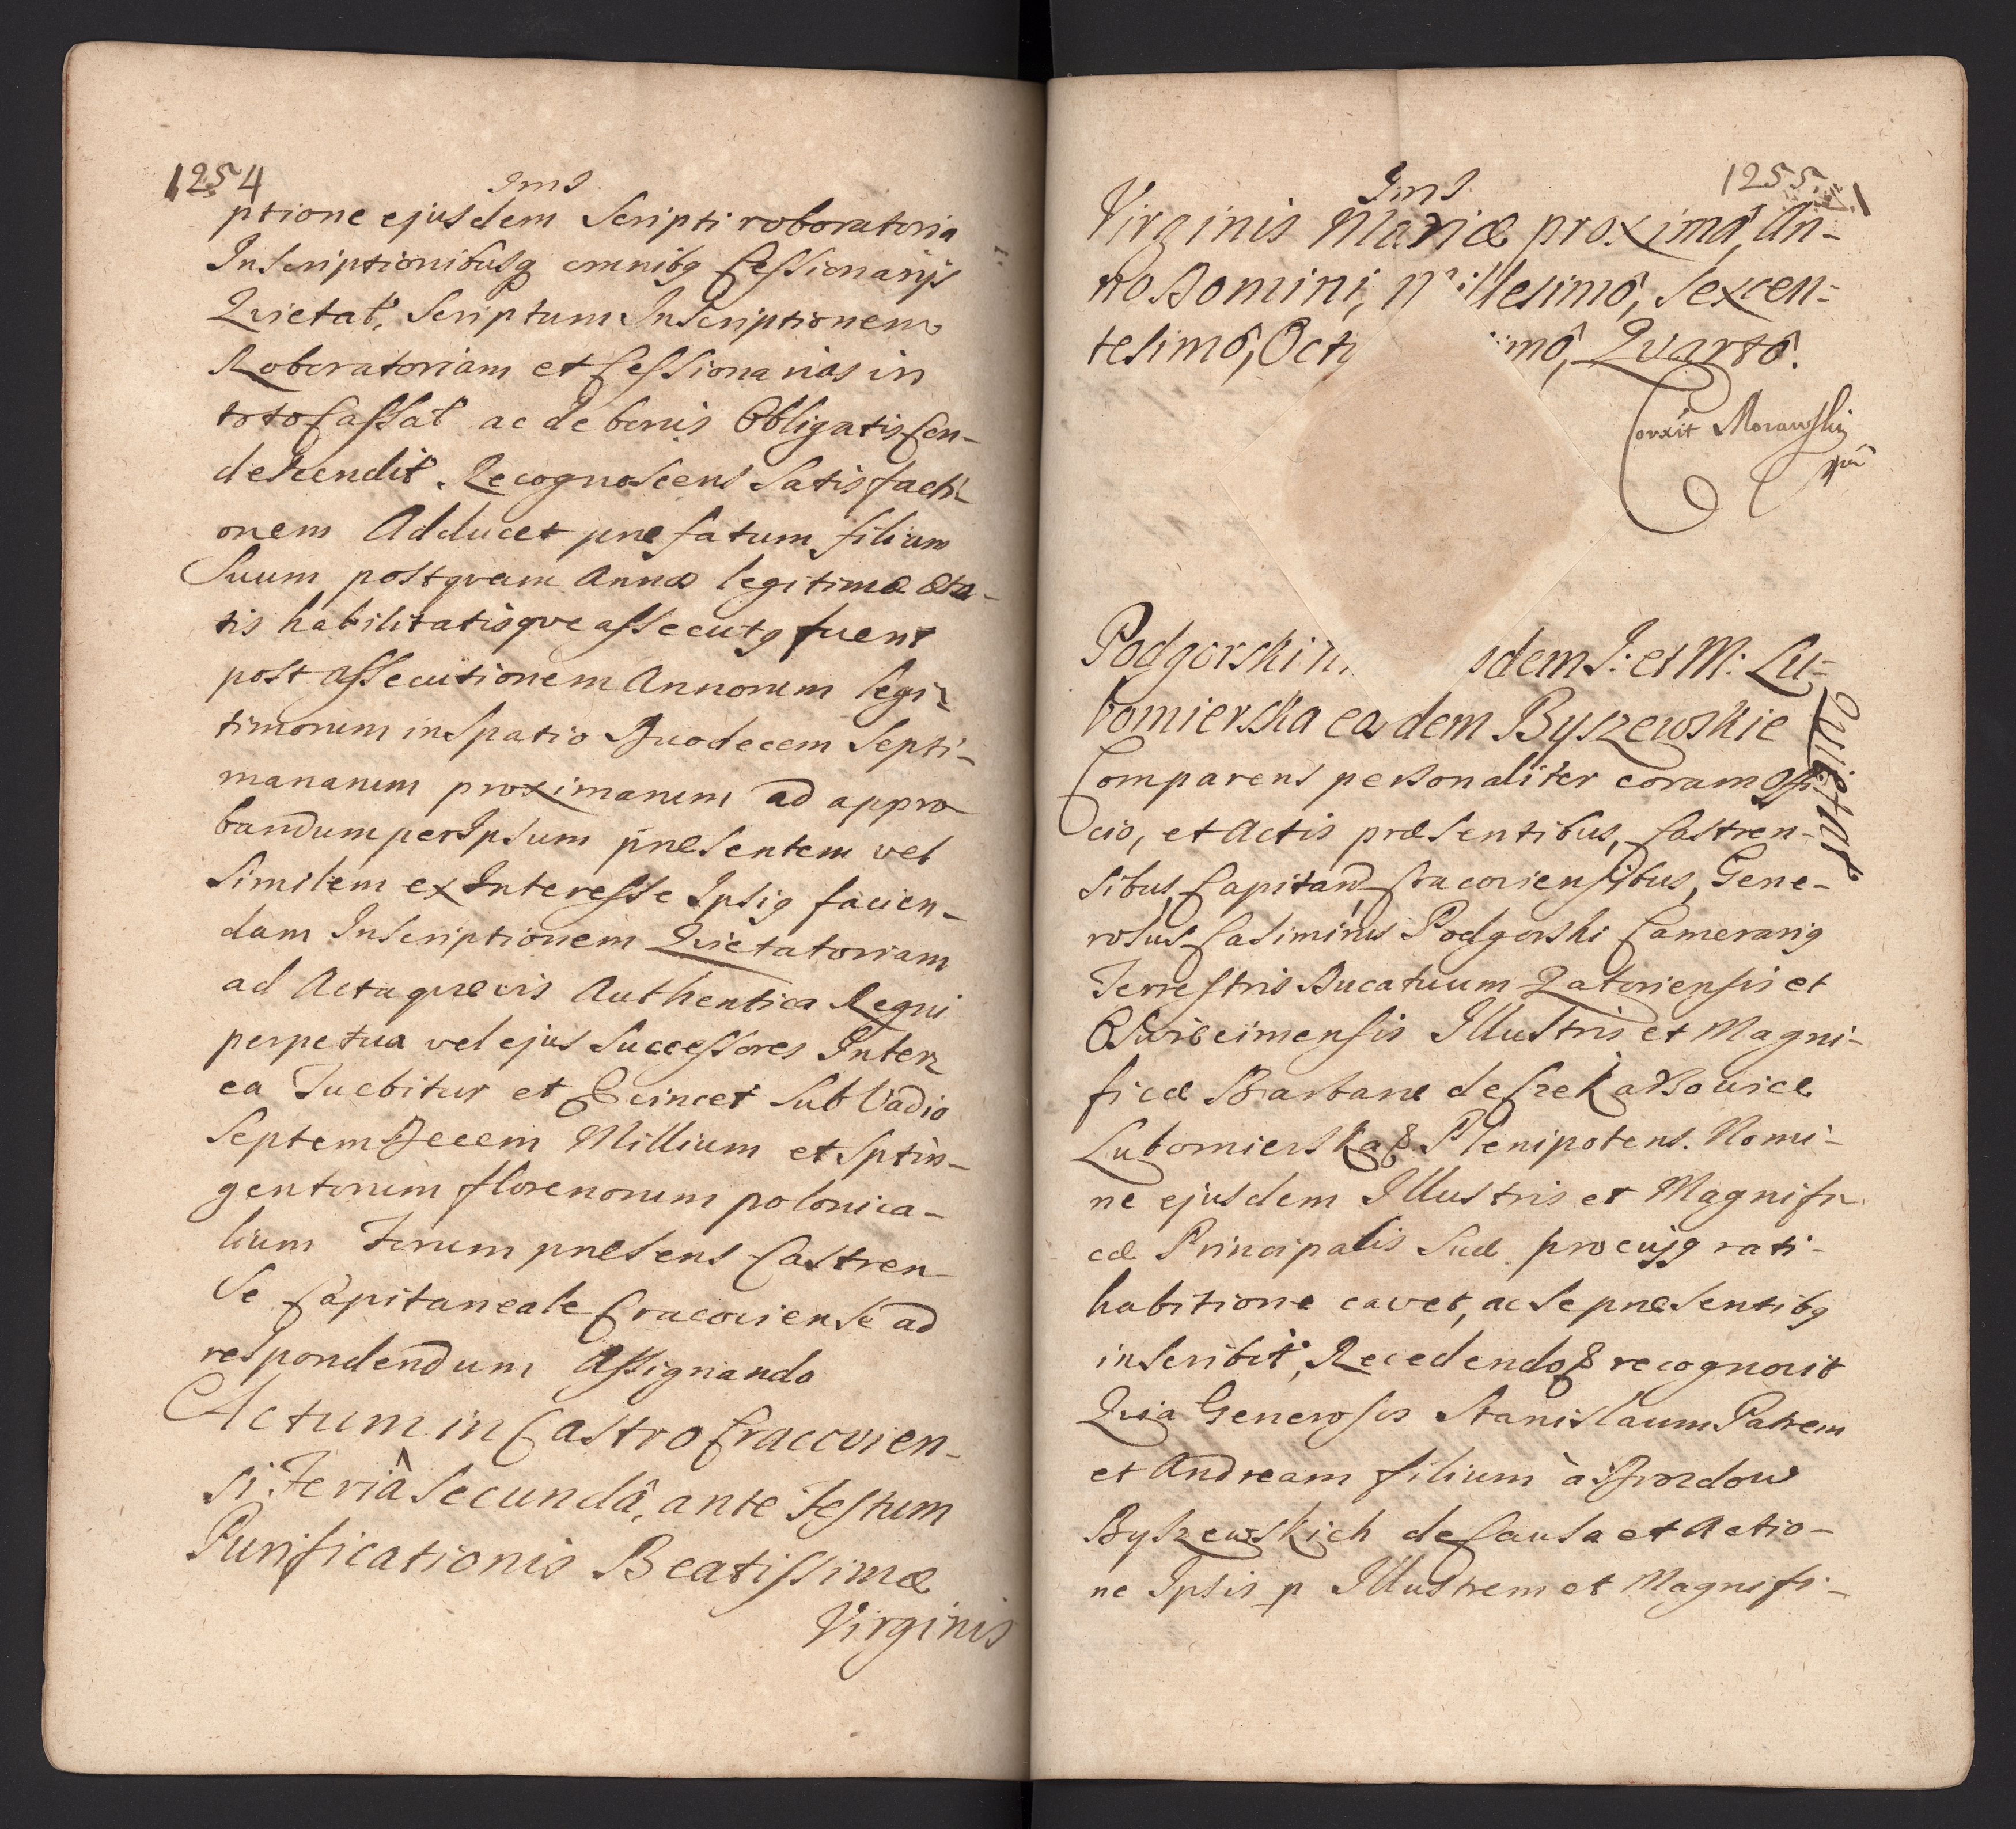 1254
Ims
ptione ejusdem Scripti roboratoria
Inscriptionibusq omnibq Cessionarijs
Quietat, Scriptum Inscriptionem
Roboratoriam et Cessionarias in
toto Cassat ac de bonis Obligatis Con-
descendit. Recognoscens Satisfacti-
onem Adducet præfatum filium
Suum postquam Annos legitimæ æta-
tis habilitatisque assecutq fuerit
post assecutionem Annorum legi-
timorum in Spatio Duodecem Septi-
manarum proximarum ad appro-
bandum per Ipsum præsentem vel
Similem ex Interesse Ipsiq facien-
dam Inscriptionem Quietatoriam
ad Acta quævis Authentica Regni
perpetua vel ejus Successores Inter-
ea Tuebitur et Evincet Sub Vadio
Septem Decem Millium et Sptin-
gentorum florenorum polonica-
lium Forum præsens Castren-
se Capitaneale Cracoviense ad
respondendum Assignando
Actum in Castro Cracovien-
si Feriâ Secundâ, ante Festum
Purificationis Beatissimæ
Virginis
1255
Ims
Virginis Mariæ proximâ, An-
no Domini, Millesimô, Sexcen-
tesimô, Oct imô, Quartô.
Correxit Morawski
mp
Podgorski dem I: et M: Lu-
bomierska eosdem Byszewskie
Quietat
Comparens personaliter coram Offi-
cio, et Actis præsentibus, Castren-
sibus, Capitan, Cracoviensibus, Gene-
rosus Casimirus Podgorski Camerariq
Terrestris Ducatuum Zatoriensis et
Oswiecimensis Illustris et Magni-
ficæ Barbaræ de Czekarsowice
Lubomierska & Plenipotens. Nomi-
ne ejusdem Illustris et Magnifi-
cæ Principalis Suæ pro cujq rati-
habitione cavet, ac se præsentibq
inscribit, Recedendo & recognovit
Quia Generosos Stanislaum Patrem
et Andream filium à Brozdow
Byszewskich de Causa et Actio-
ne Ipsis p Illustrem et Magnifi-